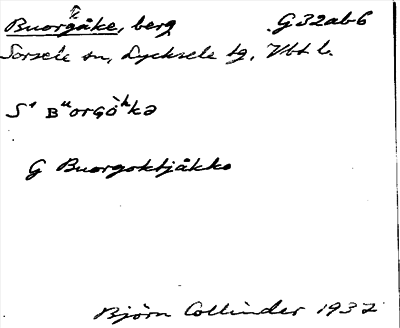 Buorgåke, berg G32ab6
Sorsele sn, Lycksele tg, Vbt l.
S¹ ʙᵘorGòʰkə
G Buorgoktjåkko
Björn Collinder 1937